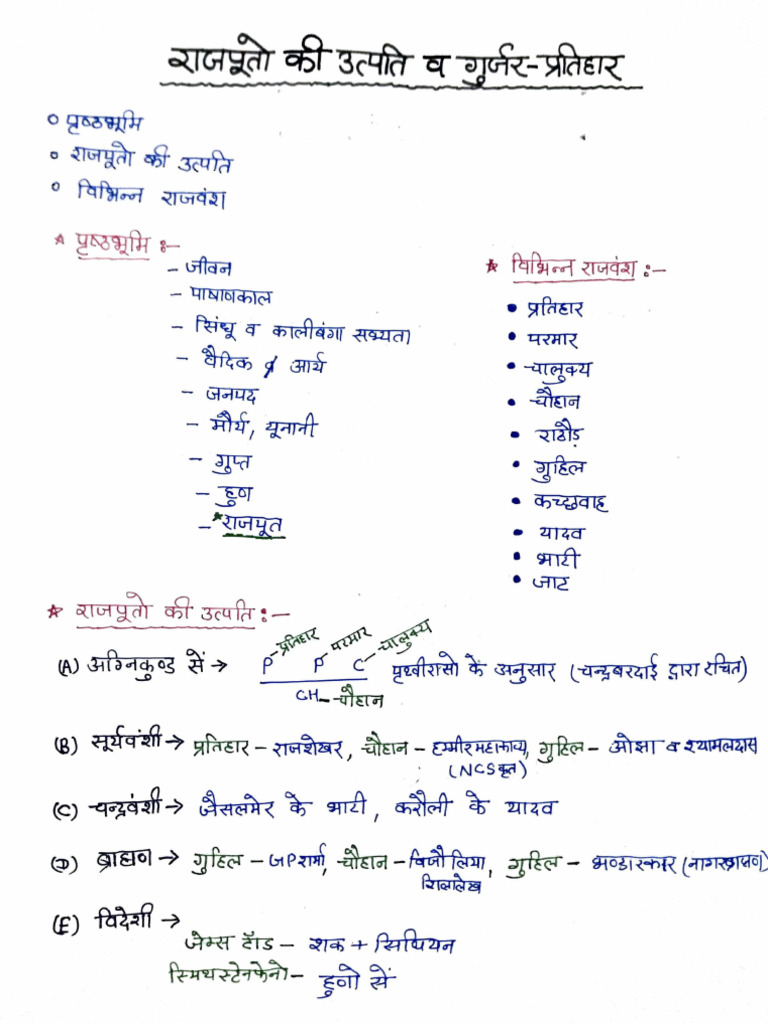 राजपूतो की उत्पति व गुर्जर-प्रतिहार
० पृष्ठभूमि
० राजपूतो की उत्पति
० विभिन्न राजवंश
* पृष्ठभूमि :-
- जीवन
- पाषाणकाल
- सिंधू व कालीबंगा सभ्यता
- वैदिक आर्य
- जनपद
- मौर्य, यूनानी
- गुप्त
- हुण
- *राजपूत
* विभिन्न राजवंश :-
• प्रतिहार
• परमार
• चालुक्य
• चौहान
• राठौड़
• गुहिल
• कच्छवाह
• यादव
• भाटी
• जाट
* राजपूतो की उत्पति :-
प्रतिहार परमार चालुक्य
(A) अग्निकुण्ड सें → P P C पृथ्वीरासो के अनुसार (चन्द्रबरदाई द्वारा रचित)
CH - चौहान
(B) सूर्यवंशी → प्रतिहार - राजशेखर, चौहान - हम्मीरमहाकाव्य, गुहिल - ओझा व श्यामलदास
(NCS कृत)
(C) चन्द्रवंशी → जैसलमेर के भाटी, करौली के यादव
(D) ब्राह्मण → गुहिल - JP शर्मा, चौहान - बिजौलिया, गुहिल - भण्डारकार (नागरब्राह्मण)
शिलालेख
(E) विदेशी →
जेम्स टॉड - शक + सिथियन
स्मिथस्टेनफेनो - हुणो सें